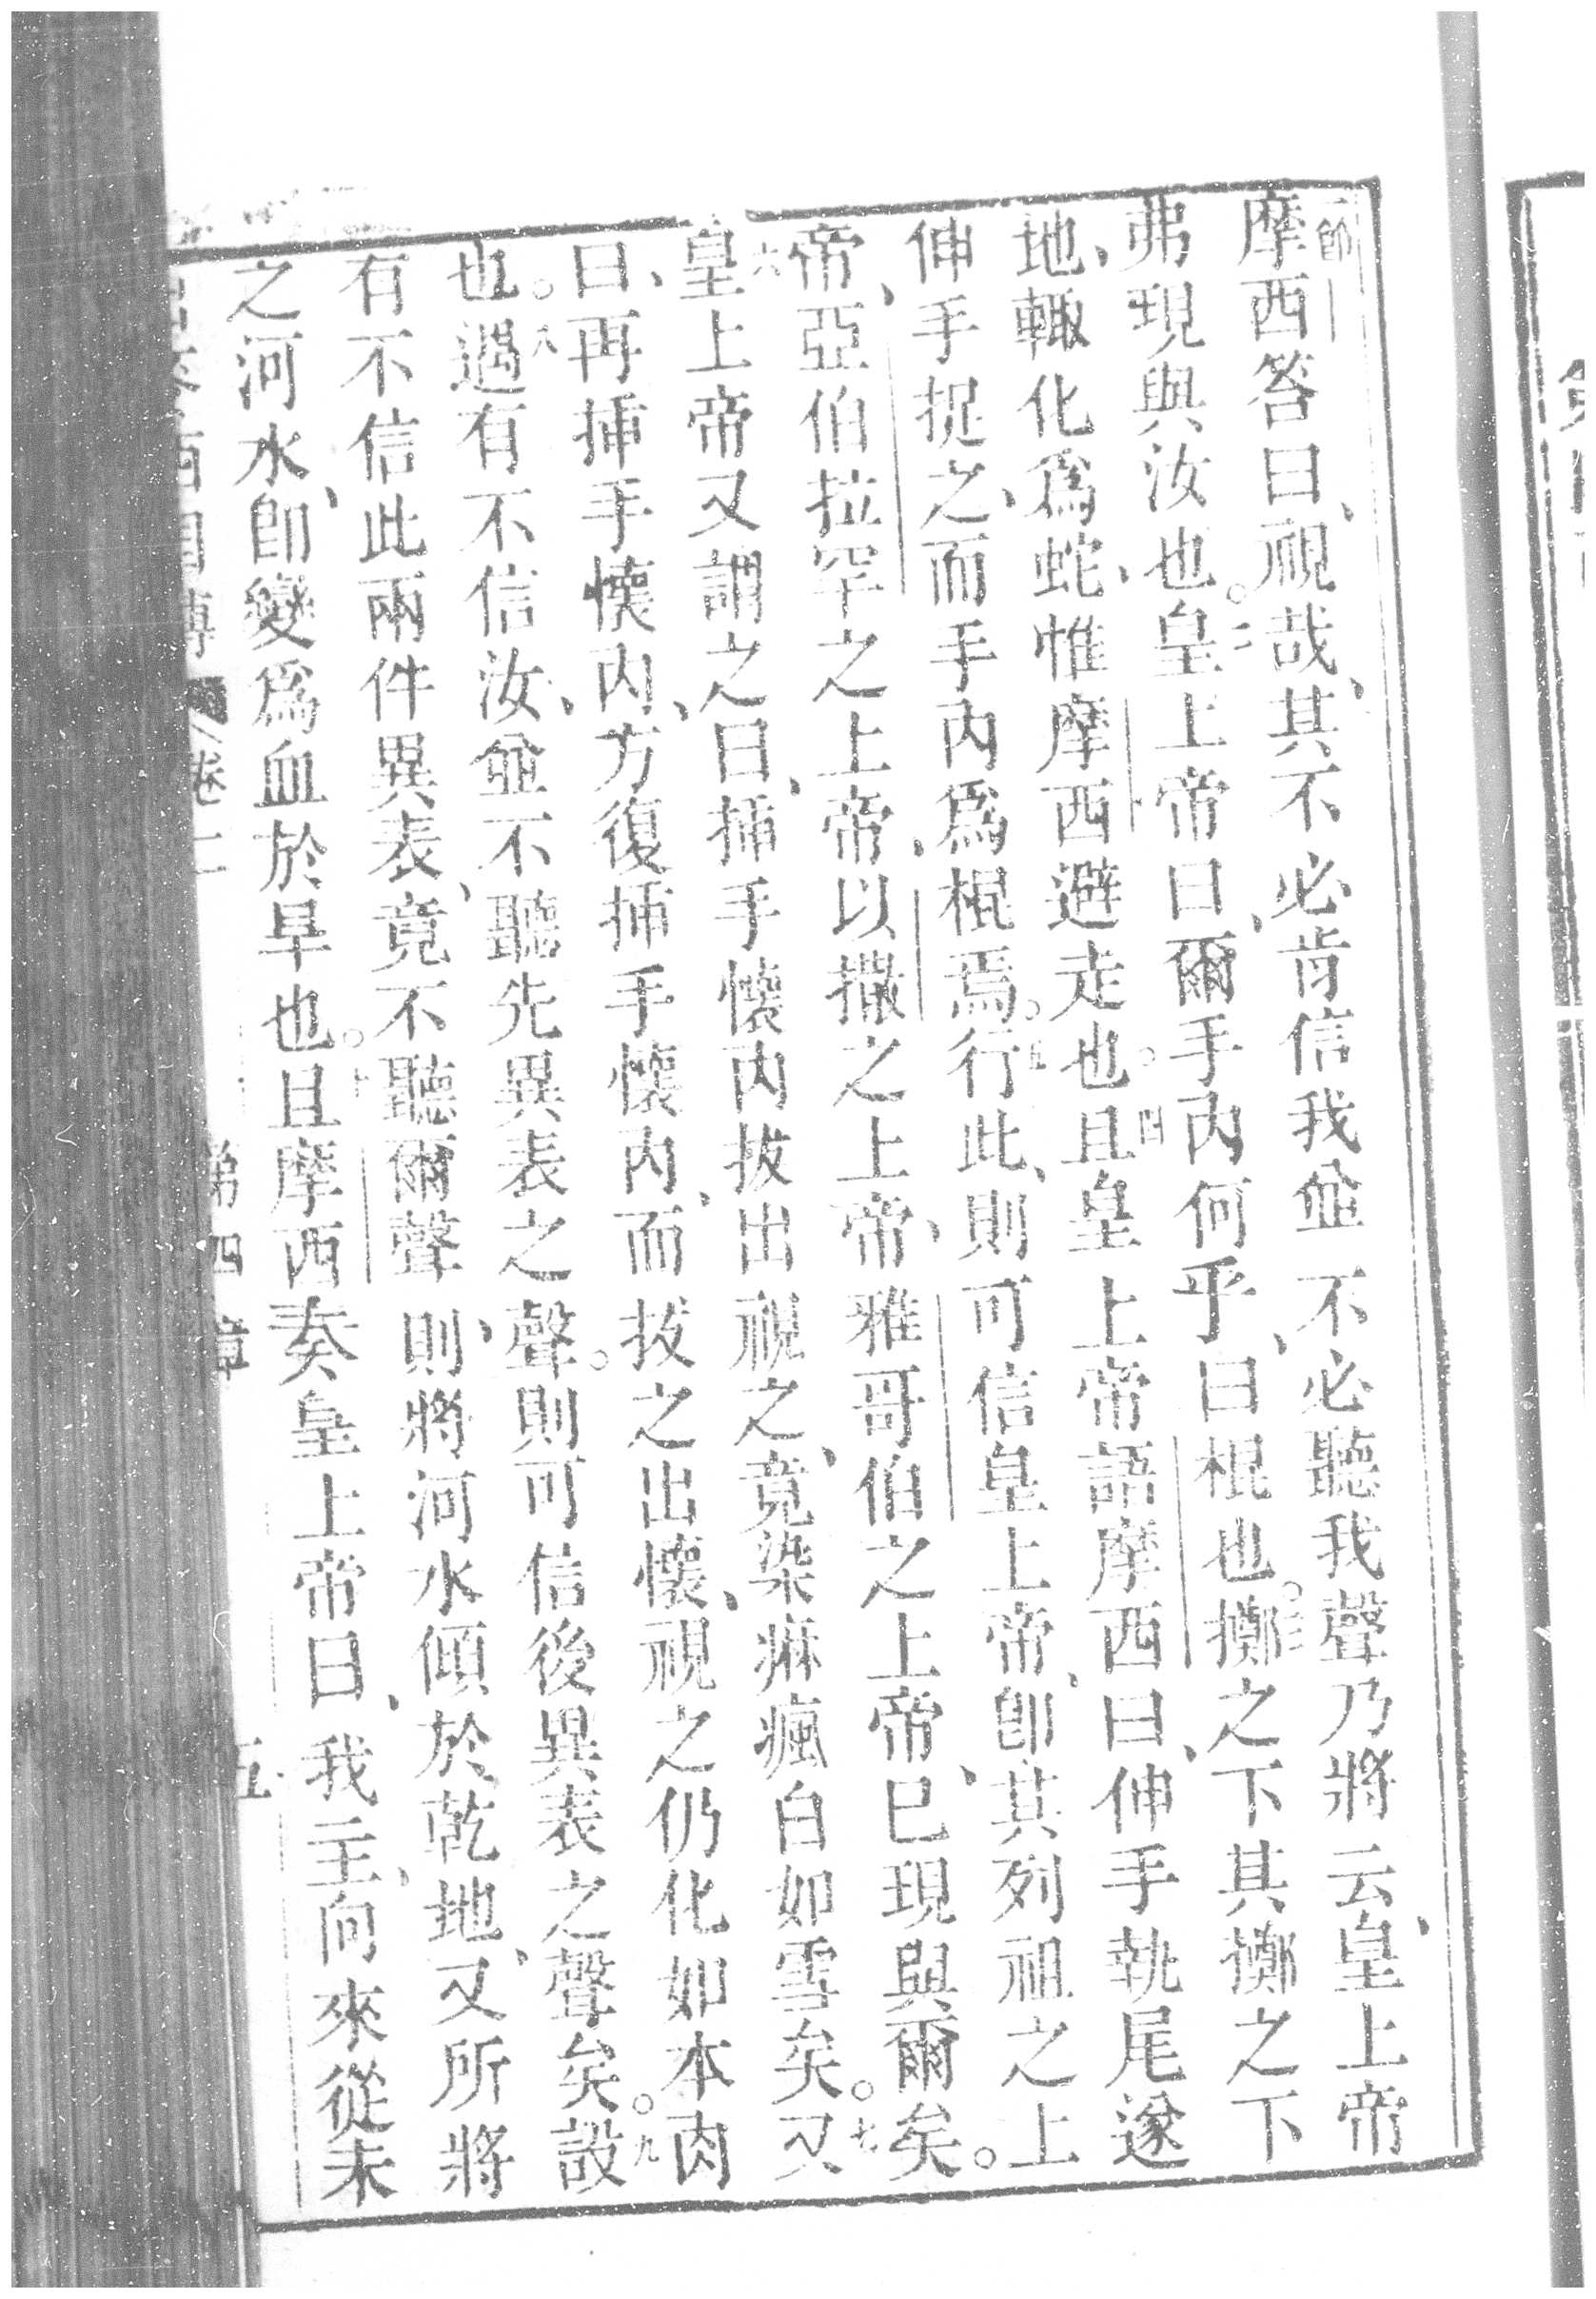 摩西答曰、視哉、其不必肯信我、並不必聽我聲、乃將云、皇上帝
弗現與汝也。二皇上帝曰、爾手內何乎、曰棍也。三擲之下、其擲之下
地、輙化爲蛇、惟摩西避走也。四且皇上帝語摩西曰、伸手執尾、遂
伸手捉之、而手內爲棍焉。五行此、則可信皇上帝、卽其列祖之上
帝、亞伯拉罕之上帝、以撒之上帝、雅哥伯之上帝、已現與爾矣。
六皇上帝又謂之曰、揷手懷內、拔出視之、竟染痳瘋白如雪矣。七又
曰、再揷手懷內、方復揷手懷內、而拔之出懷、視之仍化如本肉
也。八遇有不信汝、並不聽先異表之聲。則可信後異表之聲矣。九設
有不信此兩件異表、竟不聽爾聲、則將河水傾於乾地、又所將
之河水、卽變爲血於旱也。十且摩西奏皇上帝曰、我主、向來從未
卷二
第四章
五